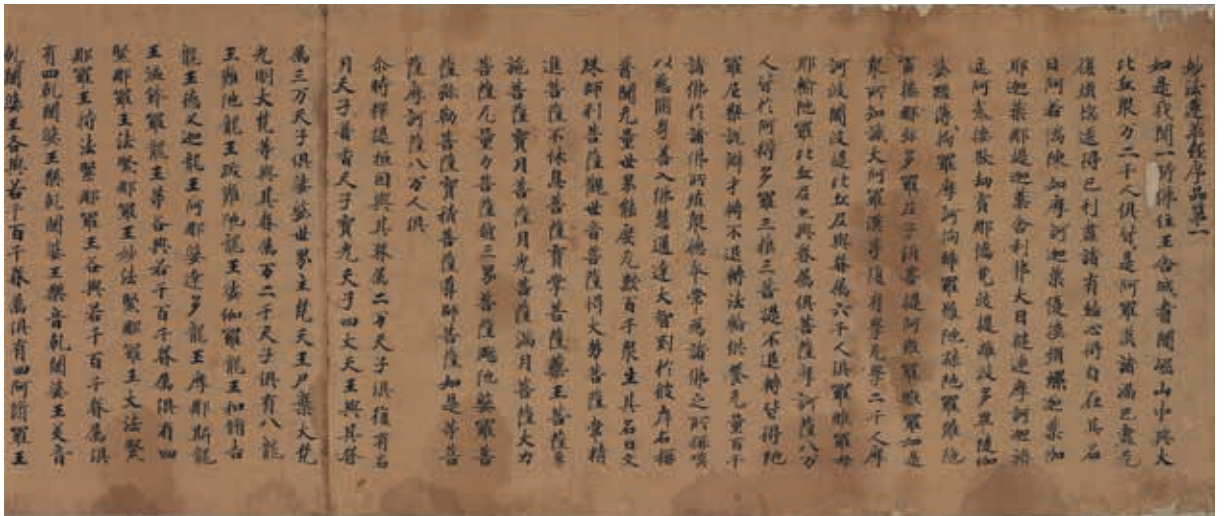 妙法蓮華經序品第一
如是我聞一時佛住王舍城耆闍崛山中與大
比丘眾万二千人俱皆是阿羅漢諸漏已盡无
復煩惱逮得己利盡諸有結心得自在其名
曰阿若憍陳如摩訶迦葉優婁頻螺迦葉伽
耶迦葉那提迦葉舍利弗大目揵連摩訶迦旃
延阿㝹樓馱劫賓那憍梵波提離波多畢陵伽
婆蹉薄拘羅摩訶拘絺羅難陀孫陀羅難陀
富樓那弥多羅尼子須菩提阿難羅睺羅如是
眾所知識大阿羅漢等復有學无學二千人摩
訶波闍波提比丘尼與眷属六千人俱羅睺羅母
耶輸陀羅比丘尼亦與眷属俱菩薩摩訶薩八万
人皆於阿耨多羅三藐三菩提不退轉皆得陀
羅尼樂說辯才轉不退轉法輪供養无量百千
諸佛於諸佛所殖眾德本常為諸佛之所稱嘆
以慈脩身善入佛慧通達大智到於彼岸名稱
普聞无量世界能度无數百千眾生其名曰文
殊師利菩薩觀世音菩薩得大勢菩薩常精
進菩薩不休息菩薩寶掌菩薩藥王菩薩勇
施菩薩寶月菩薩月光菩薩滿月菩薩大力
菩薩无量力菩薩越三界菩薩颰陀婆羅菩
薩弥勒菩薩寶積菩薩導師菩薩如是等菩
薩摩訶薩八万人俱
尒時釋提桓因與其眷属二万天子俱復有名
月天子普香天子寶光天子四大天王與其眷
属三万天子俱娑婆世界主梵天王尸棄大梵
光明大梵等與其眷属万二千天子俱有八龍
王難陀龍王跋難陀龍王娑伽羅龍王和脩吉
龍王德叉迦龍王阿那婆達多龍王摩那斯龍
王漚鉢羅龍王等各與若干百千眷属俱有四
緊那羅王法緊那羅王妙法緊那羅王大法緊
那羅王持法緊那羅王各與若干百千眷属俱
有四乾闥婆王樂乾闥婆王樂音乾闥婆王美音
乾闥婆王各與若干百千眷属俱有四阿脩羅王